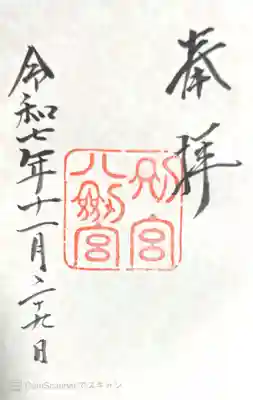 奉拝
別宮
八剱宮
令和七年十一月二十九日
CamScannerでスキャン